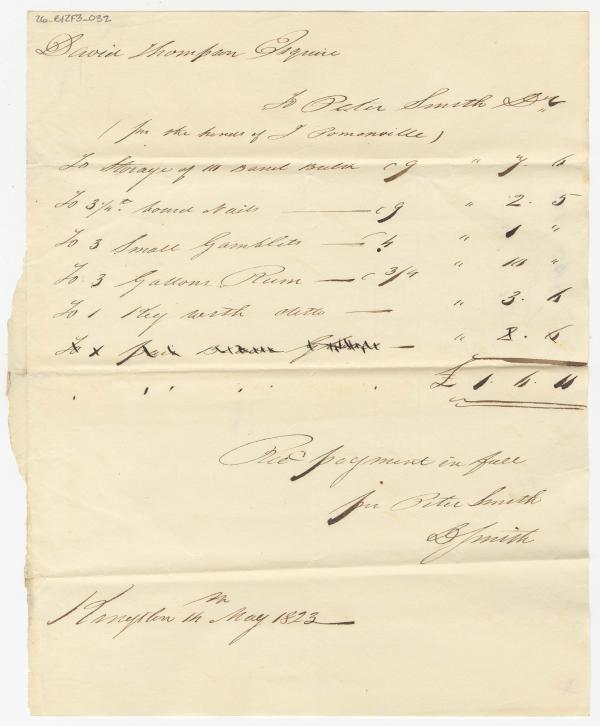 26_B12F3_032
David Thompson Esquire
To Peter Smith Dr
( per the hands of J Pomenville )
To Storage of Band Bulk @ 9 " 7. 6
To 3 board Nails — @ 9 " 2. 5
To 3 Small Gamblets — " 1 "
To 3 Gallons Rum — @ 3/4 " 10 "
To 1 Keg with ditto — " 3. 6
To x — " 8. 6
£ 1. 4.
Recd payment in full
per Peter Smith
Smith
Kingston May 1823